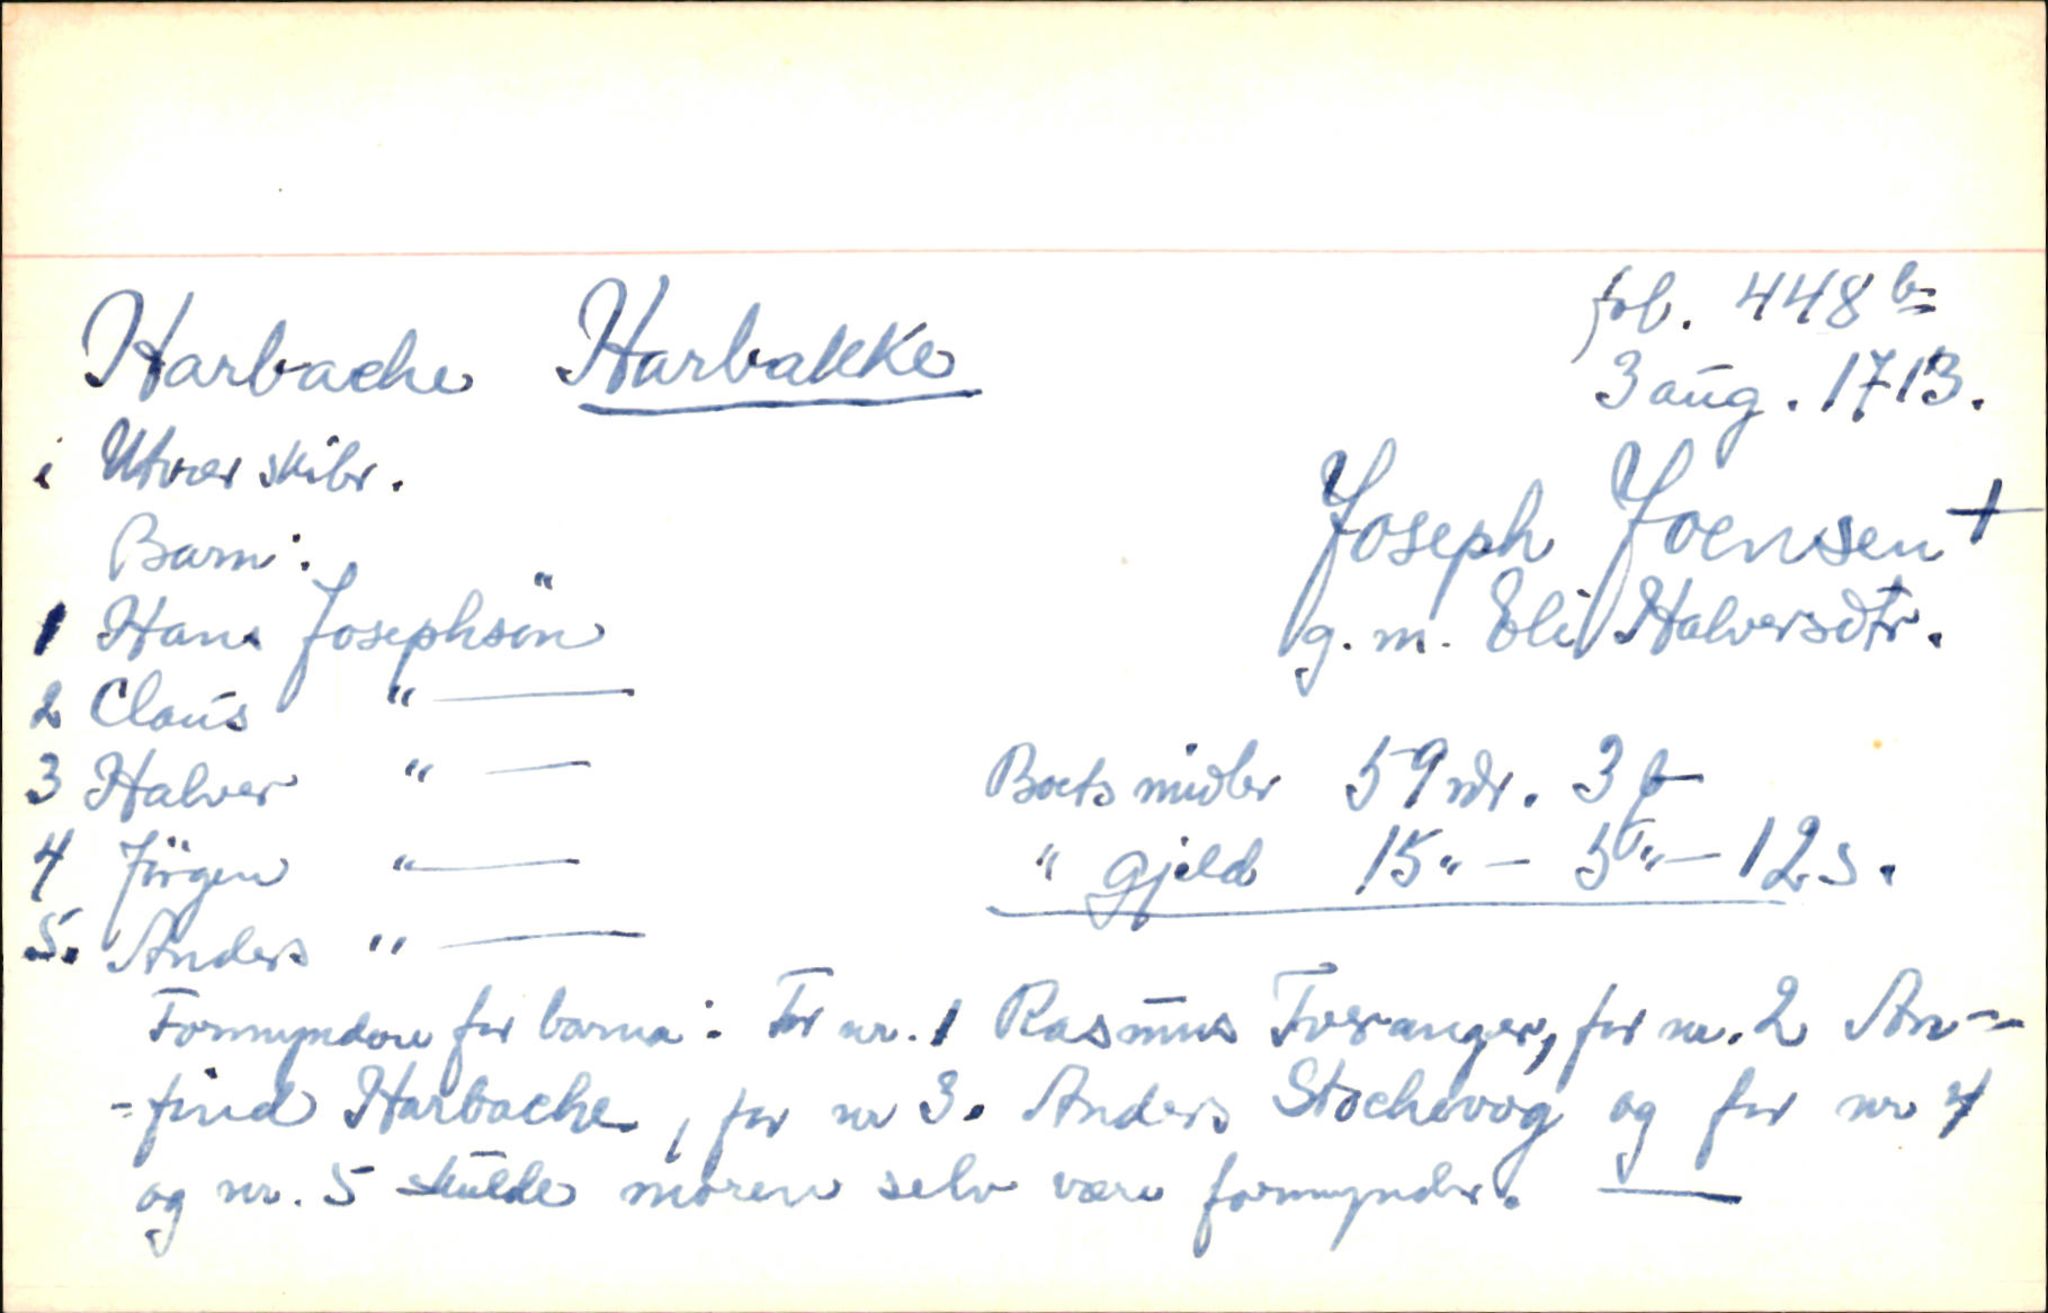 Harbache Harbakke fol. 448 b
3 aug. 1713.
i Utvær skibr.
Joseph Joensen +
g. m. Eli Halversdtr.
Barn:
1 Hans Josephsön
2 Claus " —
3 Halver " —
4 Jörgen " —
5. Anders " —
Boets midler 59 rdr. 3 ƒ
" Gjeld 15 " — 5 " — 12 s.
Formyndere for barna: For nr. 1 Rasmus Tveranger, for nr. 2 An-
-find Harbache, for nr 3. Anders Stochevog og for nr 4
og nr. 5 skulde moren selv være formynder.